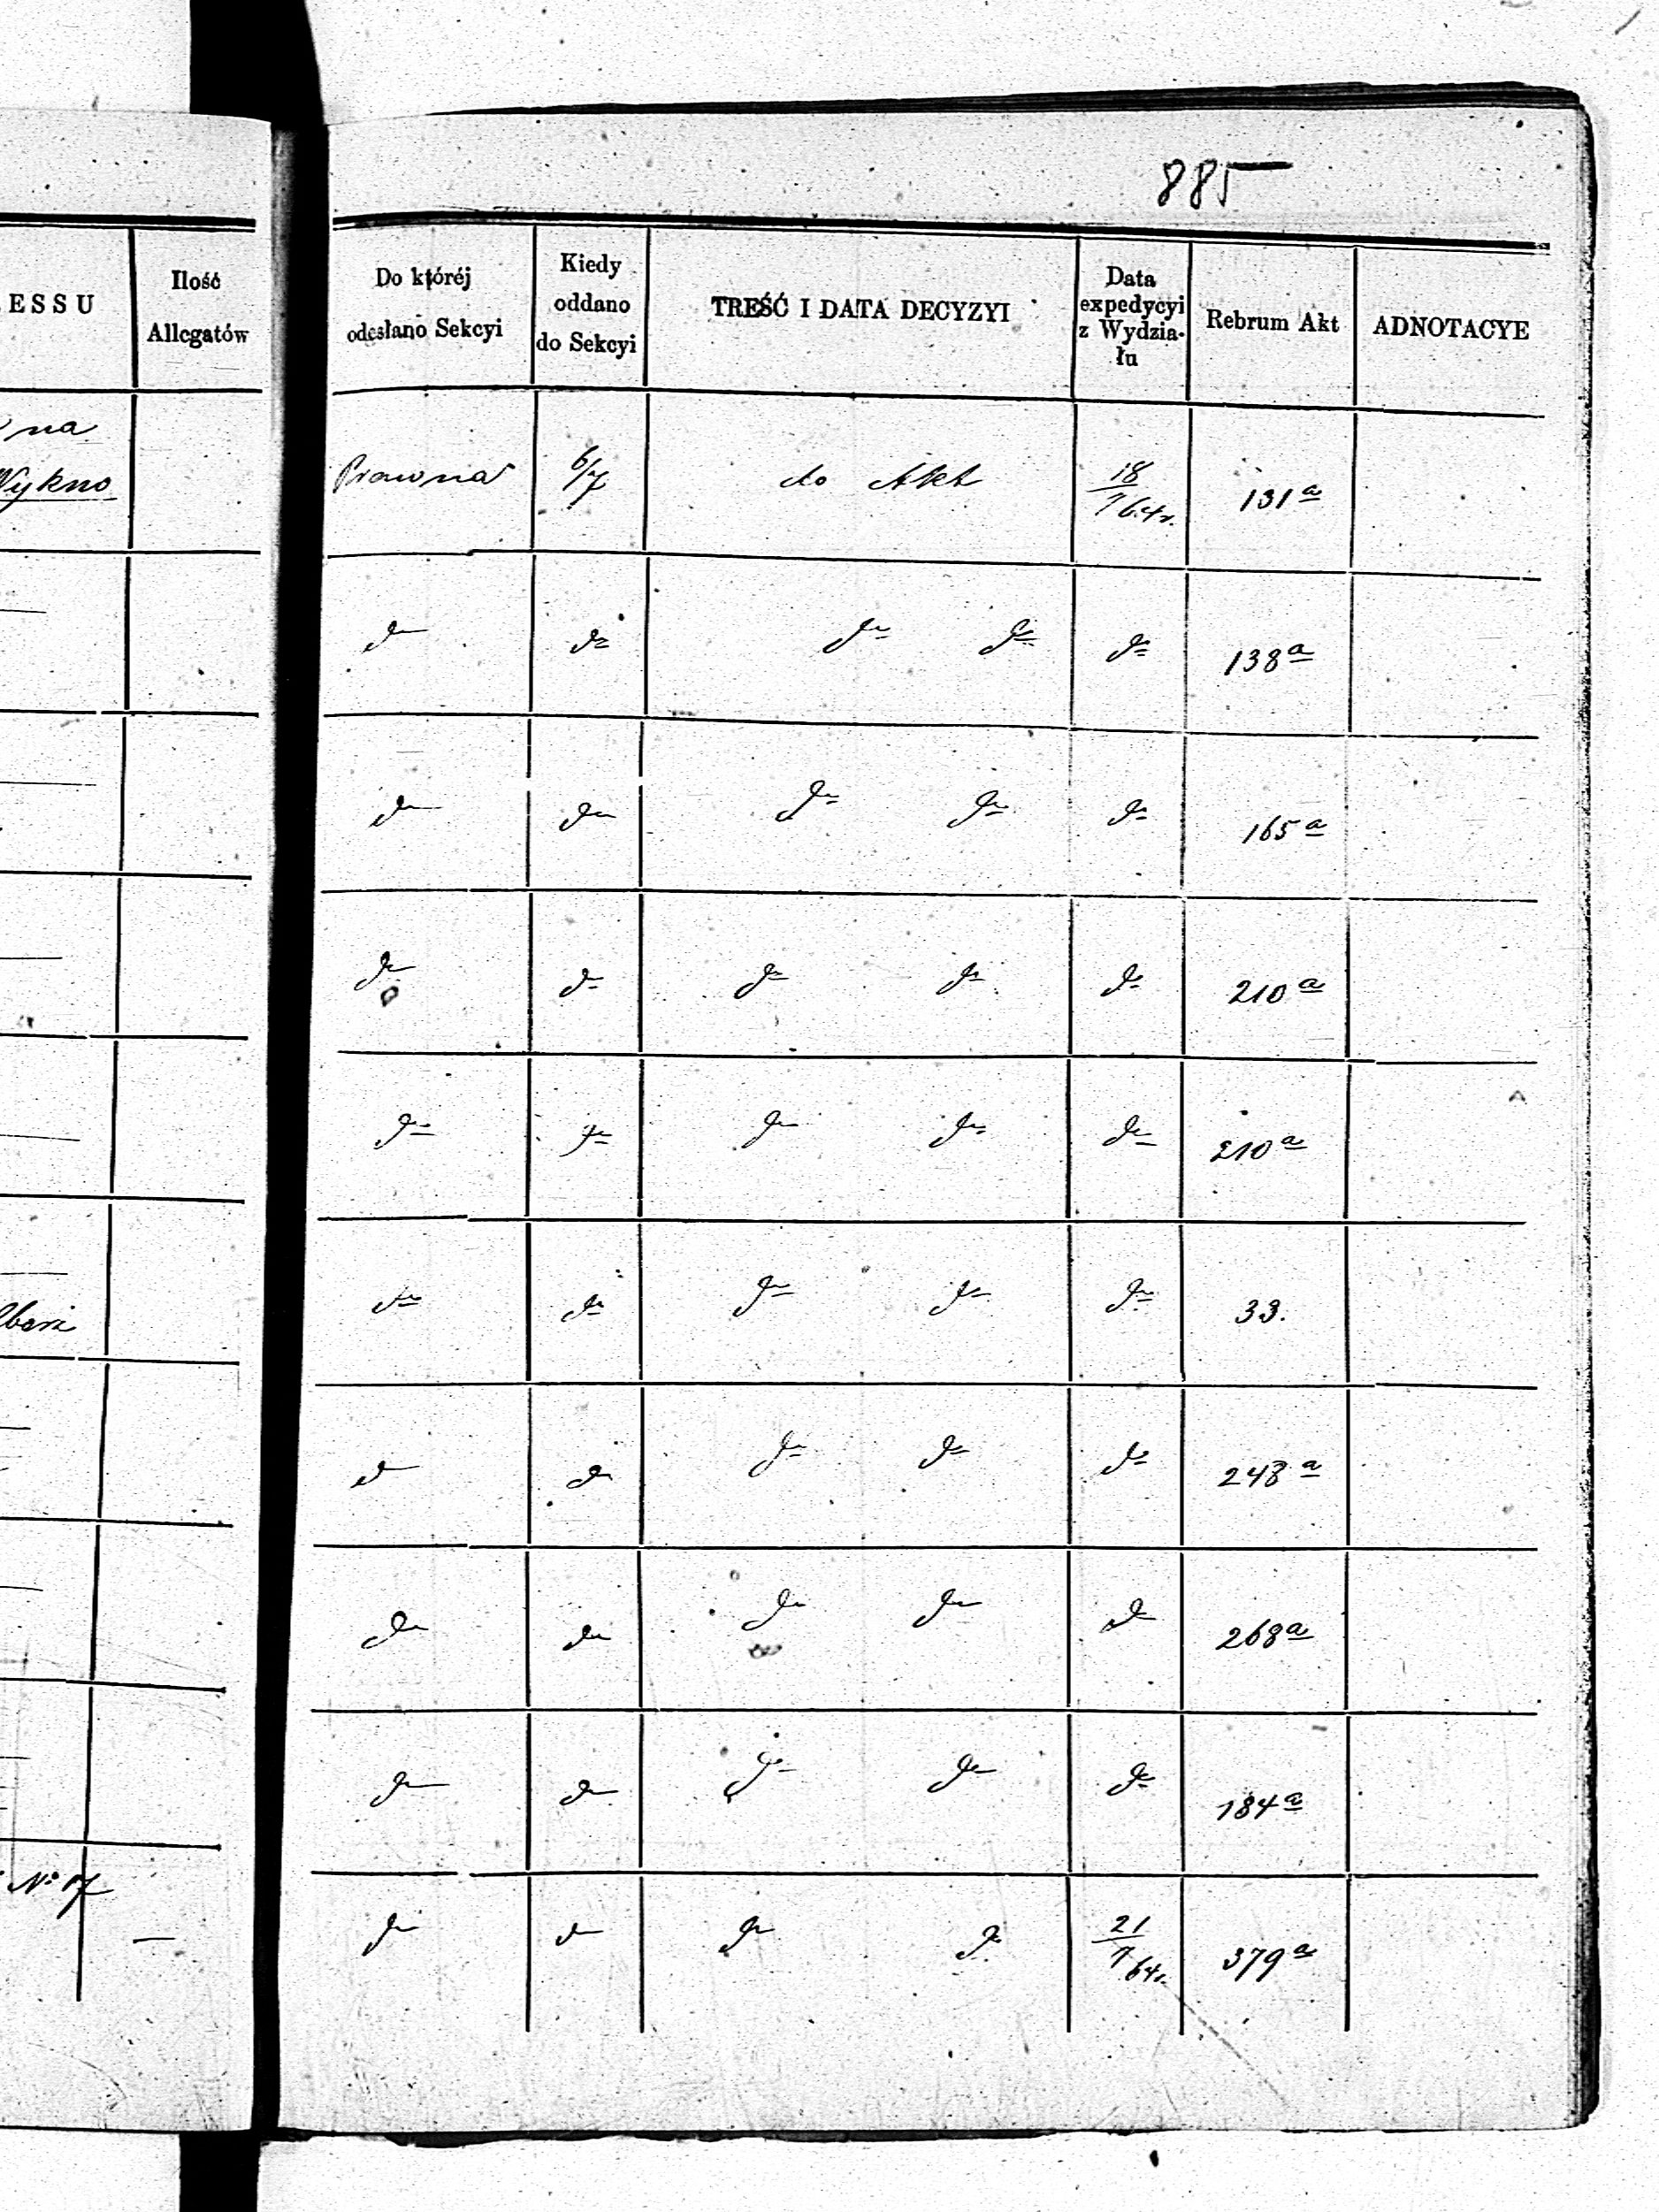 885
ESSU
Ilość
Allegatów
Do któréj
odesłano Sekcyi
Kiedy
oddano
do Sekcyi
TREŚĆ I DATA DECYZYI
Data
expedycyi
z Wydzia-
łu
Rebrum Akt
ADNOTACYE
na
Wykno
Prawna 6/7 do Akt 18/7 64r. 131a
do do do do do 138a
do do do do do 165a
do do do do do 210a
do do do do do 210a
do do do do do 33.
do do do do do 248a
do do do do do 268a
do do do do do 184a
No 17
do do do do 21/7 64r. 379a